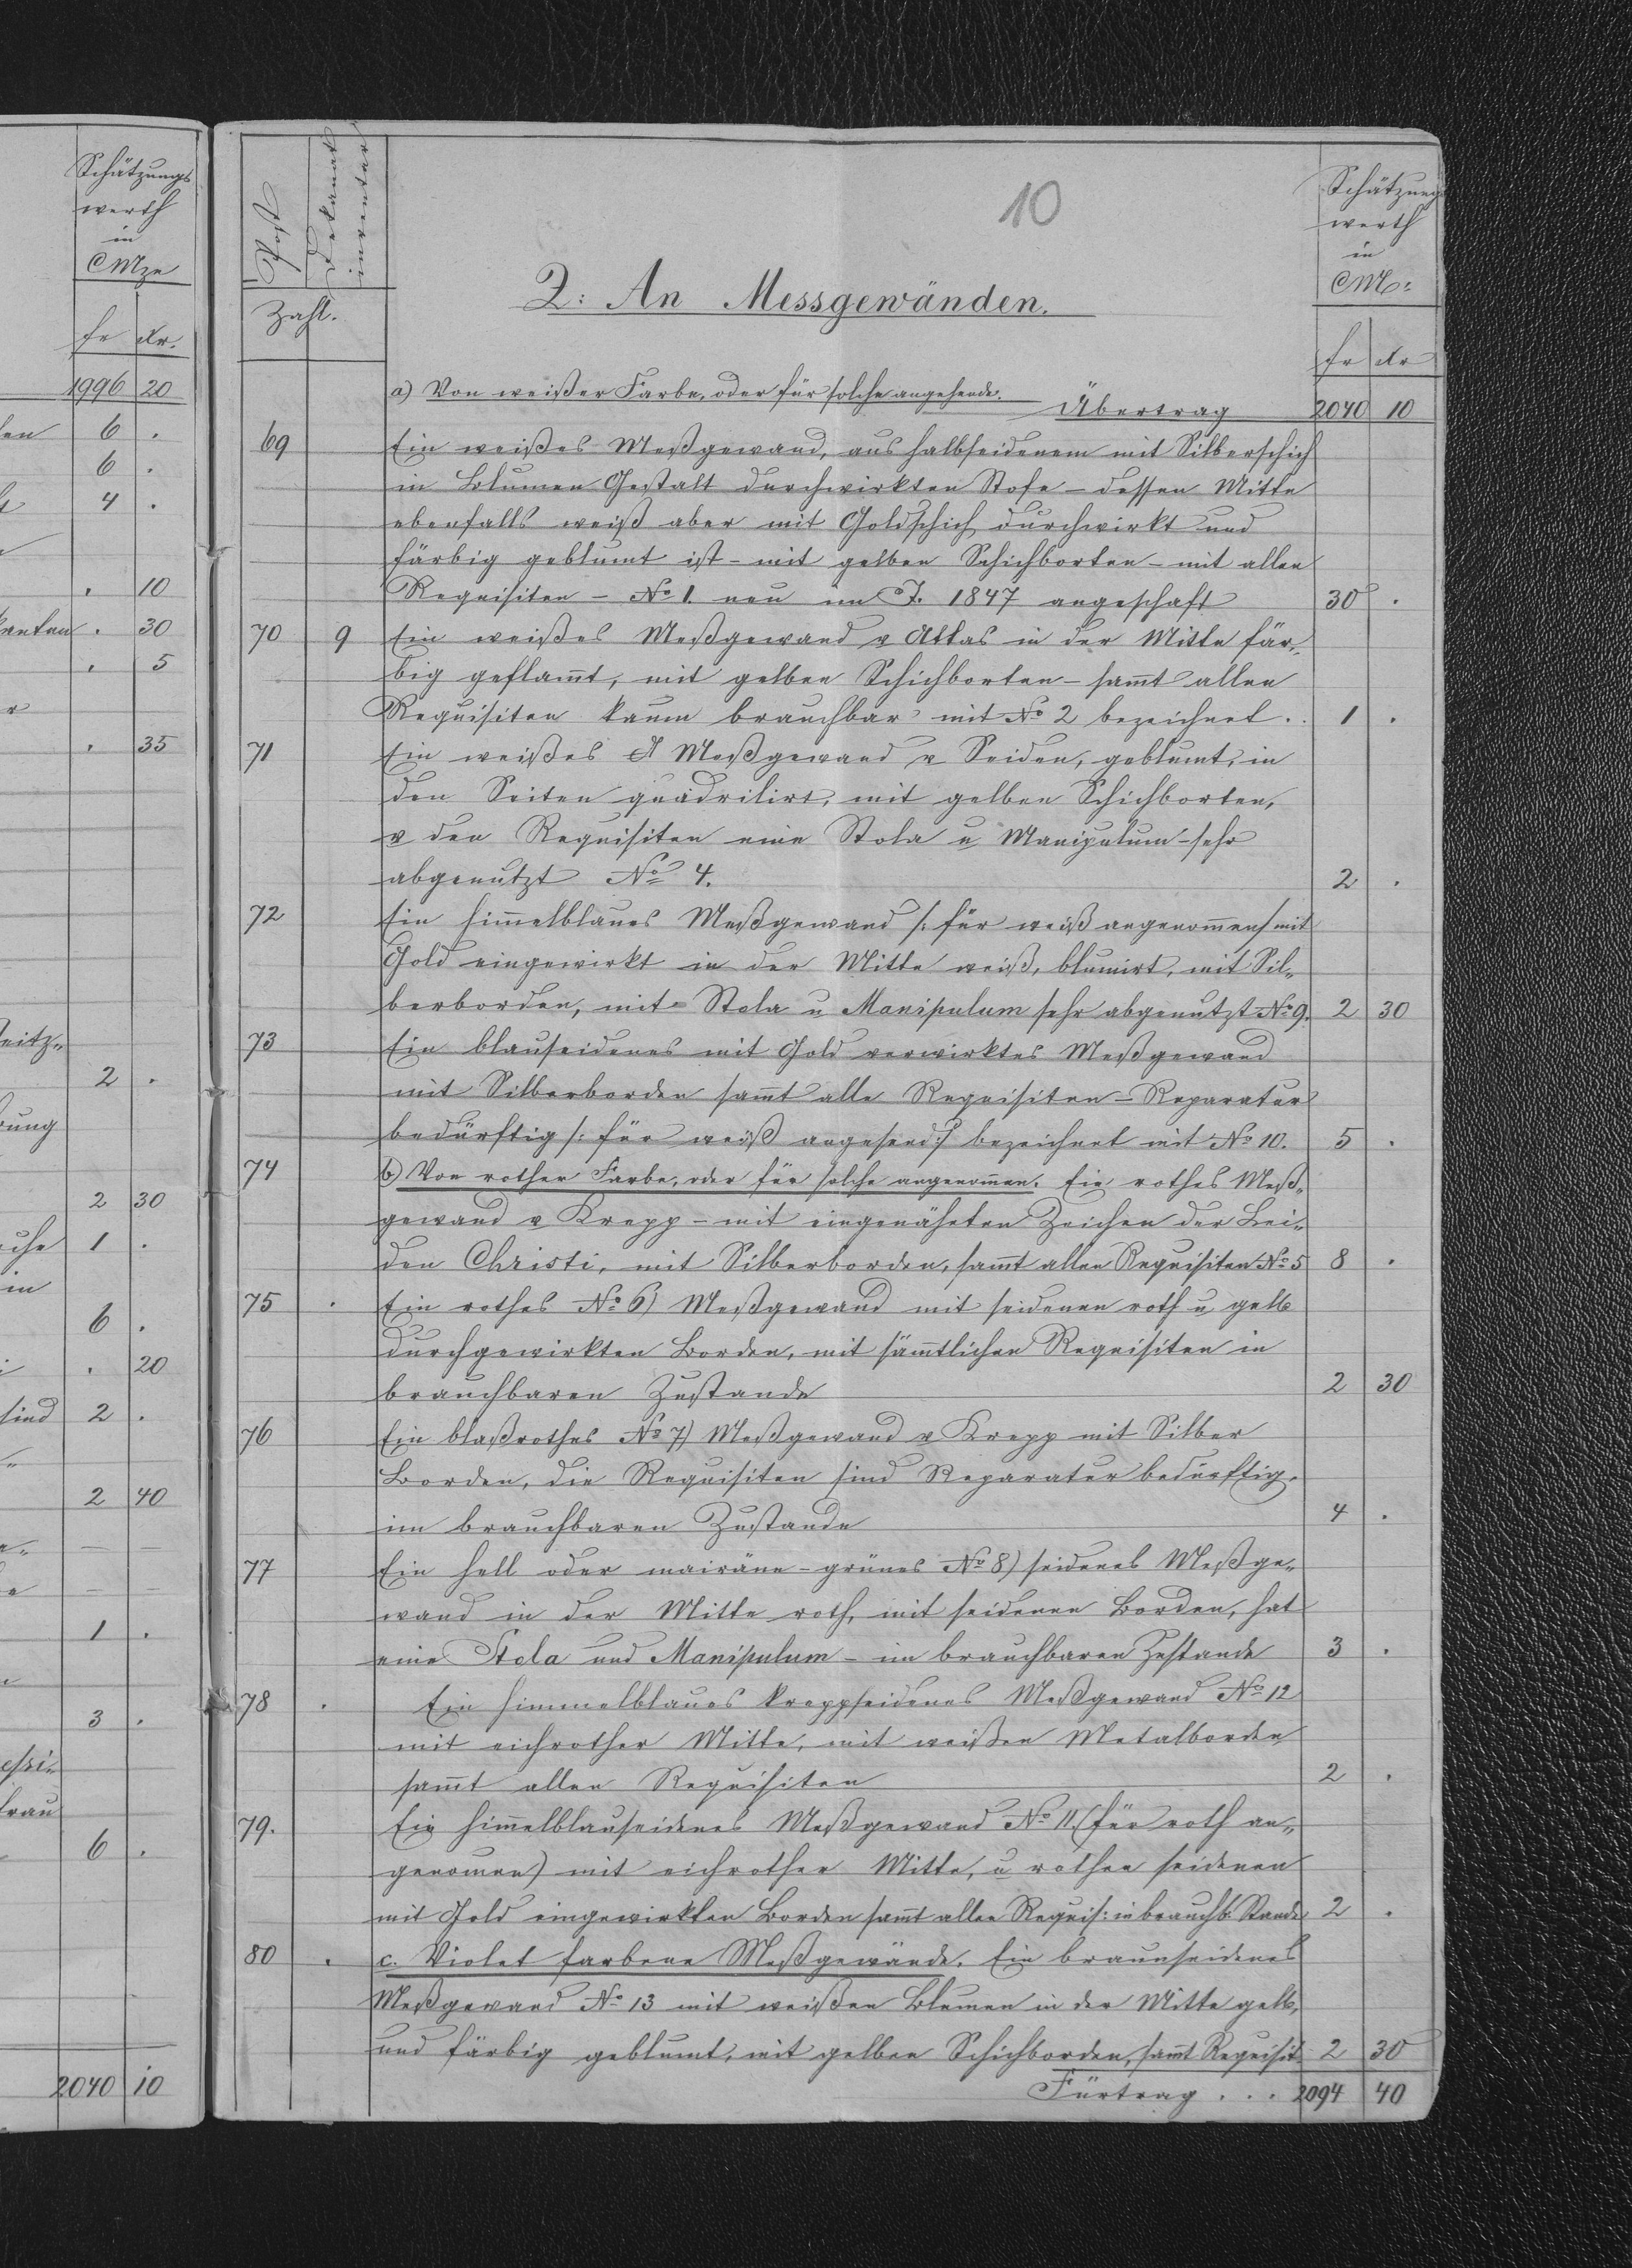 Schätzungs
werth
in
CMze
fr kr.
1996 20
6 .
6 .
4 .
. 10
. 30
. 5
. 35
2 .
2 30
1 .
in
6 .
. 20
sind 2 .
2 40
— —
— —
1 .
3 .
6 .
2040 10
Post
Dekanat
inventar
Zahl.
10
Schätzungs
werth
in
CM:
fr kr
2: An Messgewänden.
a) Von weißer Farbe, oder für solche angehende.
Übertrag 2040 10
69 Ein weißes Meßgewand, aus halbseidenem mit Silberschich
in Blumen Gestalt durchwirkten Stofe – dessen Mitte
ebenfalls weiß aber mit Goldschich durchwirkt und
färbig geblumt ist – mit gelben Schichborten – mit allen
Requisiten – No 1. neu im J. 1847 angeschaft 30 .
70 9 Ein weißes Meßgewand v Atlas in der Mitte fär„
big geflamt, mit gelben Schichborten – samt allen
Requisiten kaum brauchbar mit No 2 bezeichnet . . 1 .
71 Ein weißes Meßgewand v Seiden, geblumt, in
den Seiten quadrilirt, mit gelben Schichborten,
v den Requisiten eine Stola u Manipulum – sehr
abgenutzt No 4. 2 .
72 Ein himelblaues Meßgewand /: für weiß angenomen/ mit
Gold eingewirkt in der Mitte weiß, blumirt, mit Sil„
berborden, mit Stola u Manipulum sehr abgenutzt No 9. 2 30
73 Ein blauseidenes mit Gold verwirktes Meßgewand
mit Silberborden samt alle Requisiten – Reparatur
bedürftig /: für weiß angehend:/ bezeichnet mit No 10. 5 .
74 b) Von rother Farbe, oder für solche angenomen. Ein rothes Meß„
gewand v Krepp – mit eingenähten Zeichen der Lei„
den Christi, mit Silberborden, samt allen Requisiten No 5 8 .
75 . Ein rothes No 6) Meßgewand mit seidenen roth u gelb
durchgewirkten Borden, mit sämtlichen Requisiten in
brauchbaren Zustande 2 30
76 Ein blaßrothes No 7) Meßgewand v Krepp mit Silber
Borden, die Requisiten sind Reparatur bedürftig.
im brauchbaren Zustande 4 .
77 Ein hell oder mairäne-grünes No 8) seidenes Meßge„
wand in der Mitte roth, mit seidenen Borden, hat
eine Stola und Manipulum – im brauchbaren Zustande 3 .
78 . Ein himmelblaues kreppseidenes Meßgewand No 12
mit eichrother Mitte, mit weißen Metalborden
samt allen Requisiten 2 .
79. Ein himelblauseidenes Meßgewand No 11. (für roth an„
genomen) mit eichrother Mitte, u rothen seidenen
mit Gold eingewirkten Borden samt allen Requis: in brauchb. Stande 2 .
80 . c. Violet farbene Meßgewände. Ein braunseidenes
Meßgewand No 13 mit weißen Blumen in der Mitte gelb,
und färbig geblumt, mit gelben Schichborden, samt Requisit 2 30
Fürtrag . . . 2094 40